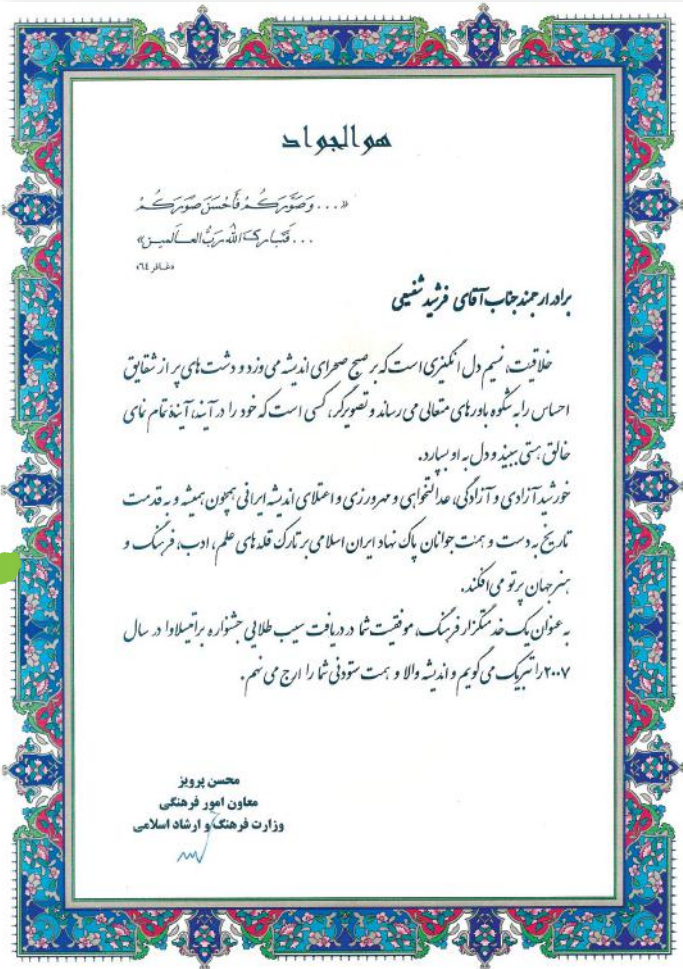 هوالجواد
«... وَصَوَّرَكُمْ فَأَحْسَنَ صُوَرَكُمْ
... فَتَبارَكَ اللّٰهُ رَبُّ العالَمین»
«غافر ٦٤»
برادر ارجمند جناب آقای فرشید شفیعی
خلاقیت، نسیم دل انگیزی است که بر صبح صحرای اندیشه می‌وزد و دشت‌های پر از شقایق
احساس را به شکوه باورهای متعالی می‌رساند و تصویرگر، کسی است که خود را در آینه، آینۀ تمام نمای
خالق هستی ببیند و دل به او بسپارد.
خورشید آزادی و آزادگی، عدالتخواهی و مهرورزی و اعتلای اندیشه ایرانی همچون همیشه و به قدمت
تاریخ به دست و همت جوانان پاک نهاد ایران اسلامی بر تارک قله‌های علم، ادب، فرهنگ و
هنر جهان پرتو می‌افکند.
به عنوان یک خدمتگزار فرهنگ، موفقیت شما در دریافت سیب طلایی جشنواره براتیسلاوا در سال
۲۰۰۷ را تبریک می‌گویم و اندیشه والا و همت ستودنی شما را ارج می‌نهم.
محسن پرویز
معاون امور فرهنگی
وزارت فرهنگ و ارشاد اسلامی